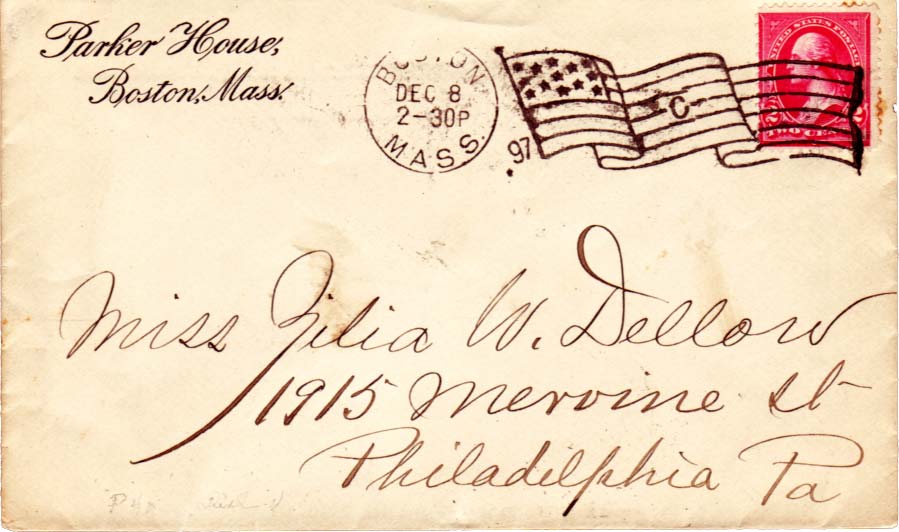 Parker House,
Boston, Mass.
BOSTON
DEC 8
2-30P
MASS.
97
C
UNITED STATES POSTAGE
2 2
TWO CENTS
Miss Zilia W. Dellow
1915 Mervine st
Philadelphia Pa